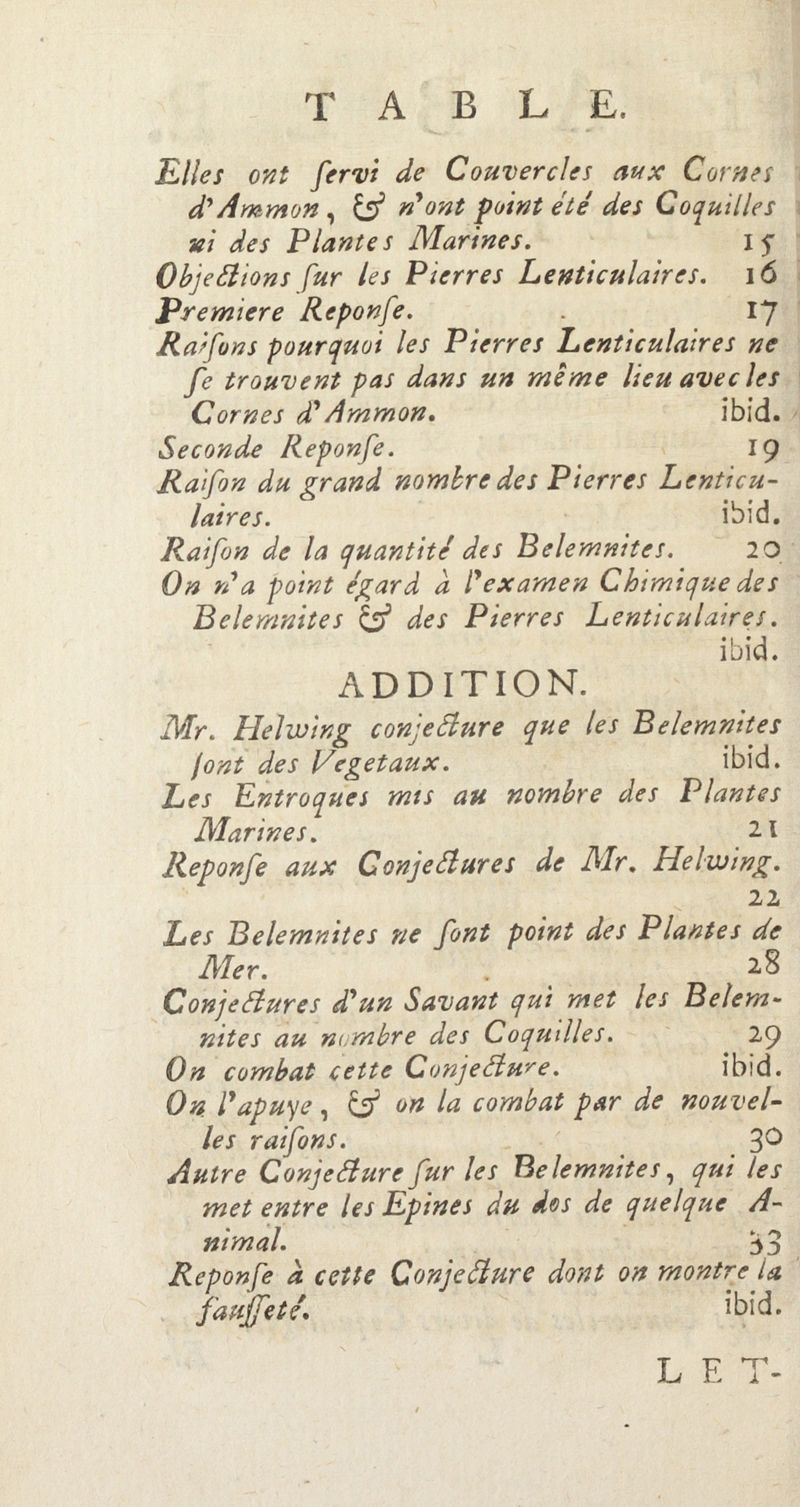 TABLE.
Elles ont ſervi de Couvercles aux Cornes
d'Ammon, & n'ont point été des Coquilles
ni des Plantes Marines. 15
Objections ſur les Pierres Lenticulaires. 16
Premiere Reponſe. 17
Raiſons pourquoi les Pierres Lenticulaires ne
ſe trouvent pas dans un même lieu avec les
Cornes d'Ammon. ibid.
Seconde Reponſe. 19
Raiſon du grand nombre des Pierres Lenticu-
laires. ibid.
Raiſon de la quantité des Belemnites. 20
On n'a point égard à l'examen Chimique des
Belemnites & des Pierres Lenticulaires.
ibid.
ADDITION.
Mr. Helwing conjecture que les Belemnites
ſont des Vegetaux. ibid.
Les Entroques mis au nombre des Plantes
Marines. 21
Reponſe aux Conjectures de Mr. Helwing.
22
Les Belemnites ne ſont point des Plantes de
Mer. 28
Conjectures d'un Savant qui met les Belem-
nites au nombre des Coquilles. 29
On combat cette Conjecture. ibid.
On l'apuye, & on la combat par de nouvel-
les raiſons. 30
Autre Conjecture ſur les Belemnites, qui les
met entre les Epines du dos de quelque A-
nimal. 33
Reponſe à cette Conjecture dont on montre la
fauſſeté. ibid.
LET-